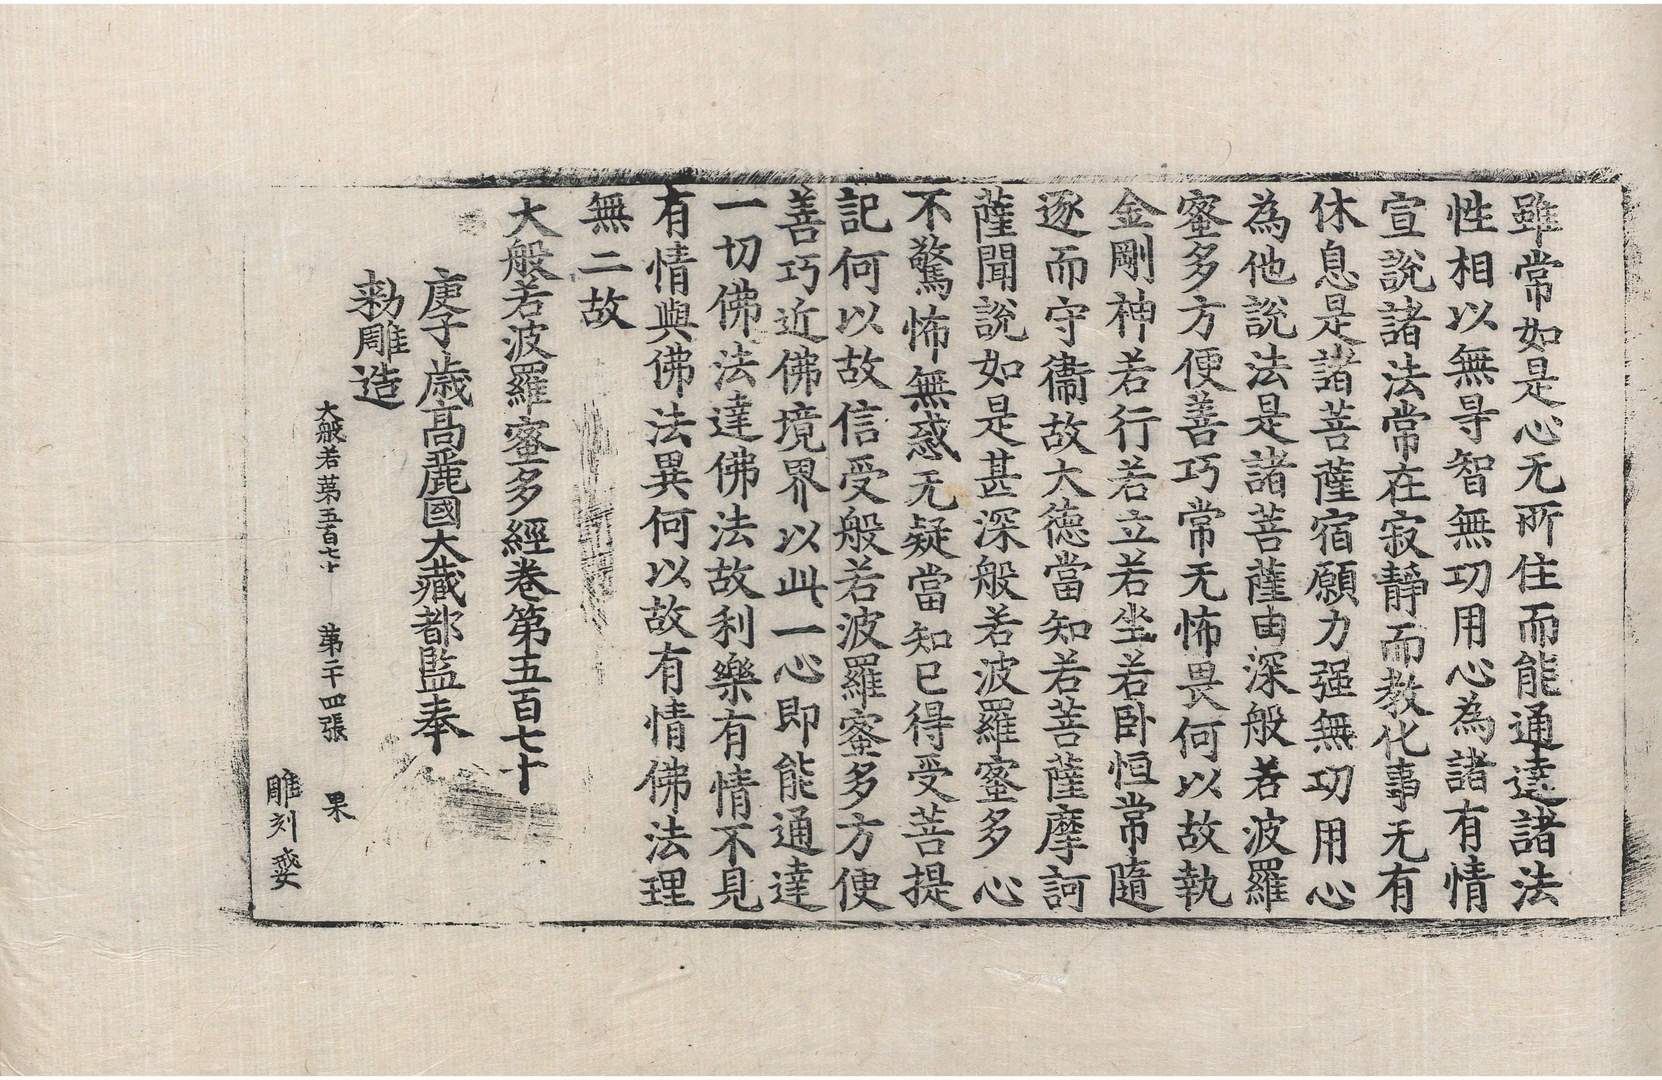 雖常如是心无所住而能通達諸法
性相以無㝵智無功用心為諸有情
宣說諸法常在寂靜而教化事无有
休息是諸菩薩宿願力强無功用心
為他說法是諸菩薩由深般若波羅
蜜多方便善巧常无怖畏何以故執
金剛神若行若立若坐若卧恒常隨
逐而守衞故大德當知若菩薩摩訶
薩聞說如是甚深般若波羅蜜多心
不驚怖無惑无疑當知已得受菩提
記何以故信受般若波羅蜜多方便
善巧近佛境界以此一心即能通達
一切佛法達佛法故利樂有情不見
有情與佛法異何以故有情佛法理
無二故
大般若波羅蜜多經卷第五百七十
庚子歳高麗國大藏都監奉
勑雕造
大般若第五百七十 第二十四張 果
雕刻